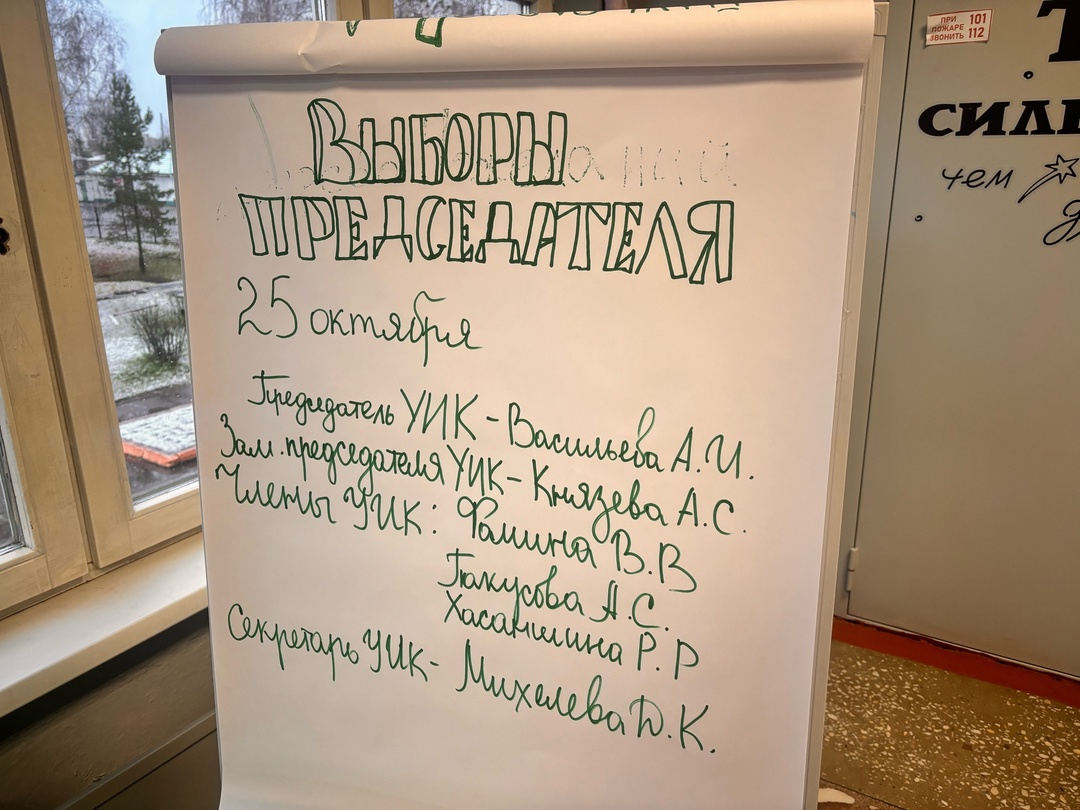 ВЫБОРЫ
ПРЕДСЕДАТЕЛЯ
25 октября
Председатель УИК - Васильева А.И.
Зам. председателя УИК - Князева А.С.
Члены УИК: Фамина В.В
А.С.
Хасаншина Р.Р
Секретарь УИК - Михелева Д.К.
ПРИ ПОЖАРЕ ЗВОНИТЬ 101 112
чем